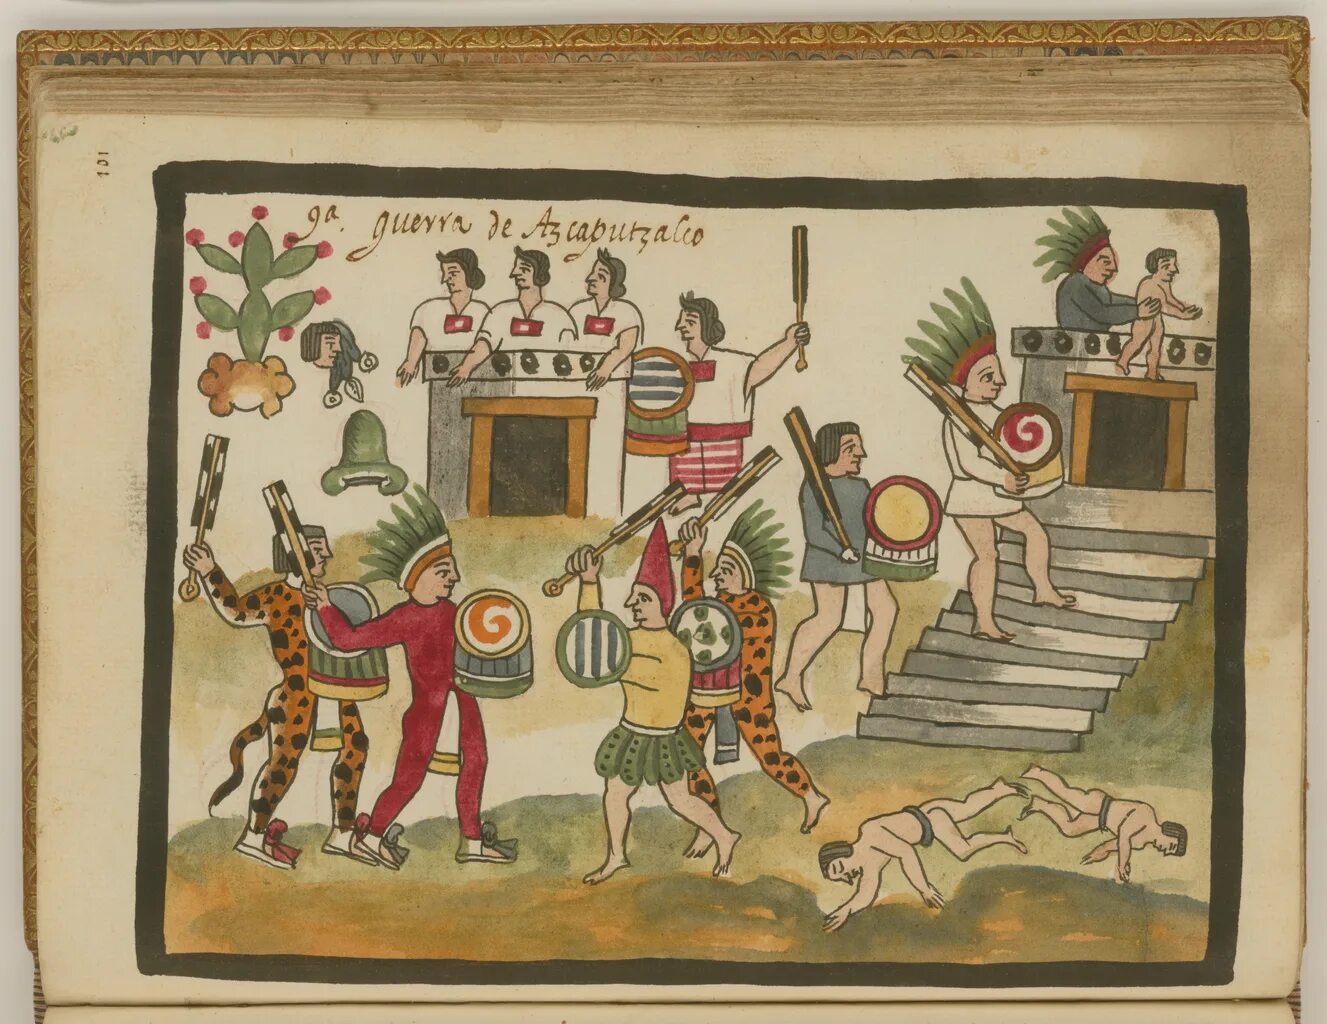 101
9ª. guerra de Azcaputzalco